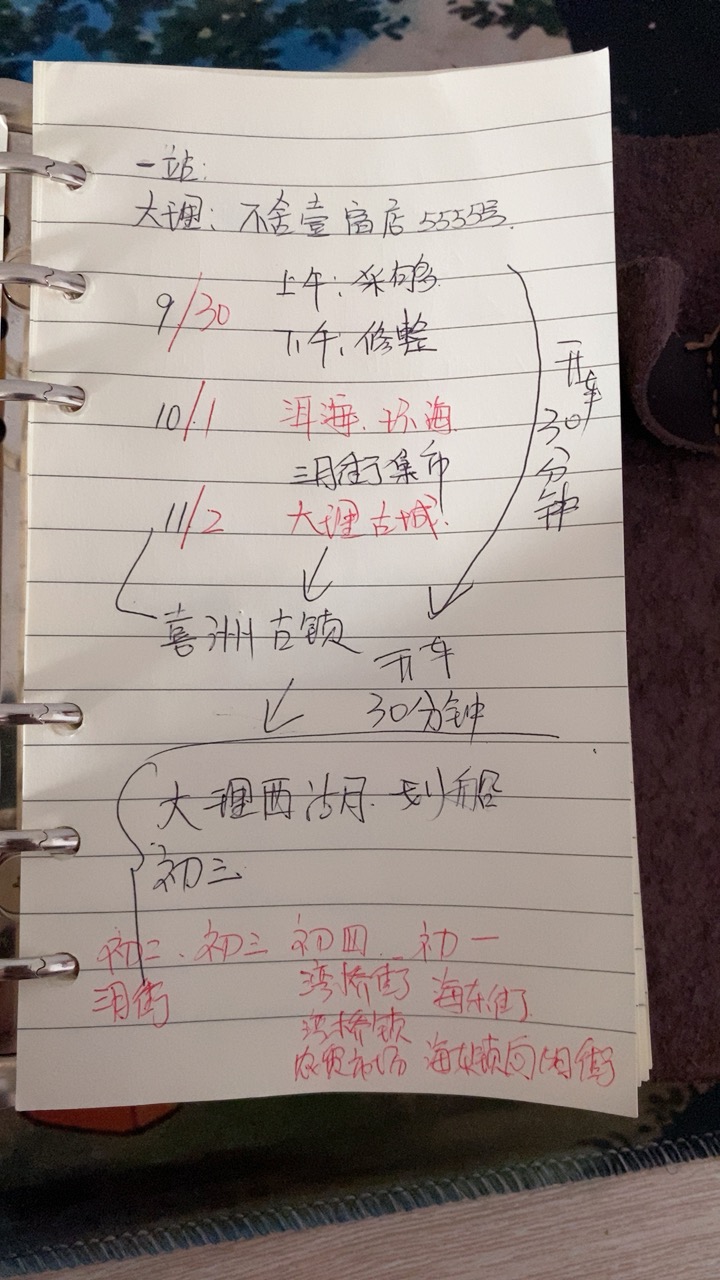 一站:
大理: 不舍壹宿店 5555号.
9/30 上午: 采购
下午: 修整
10/1 洱海. 环海
三月街集市
11/2 大理古城.
开车30分钟
喜洲古镇
开车
30分钟
大理西湖. 划船
初三
初二. 初三 初四. 初一
三月街 湾桥街 海东街
湾桥镇
农贸市场 海东镇向阳街